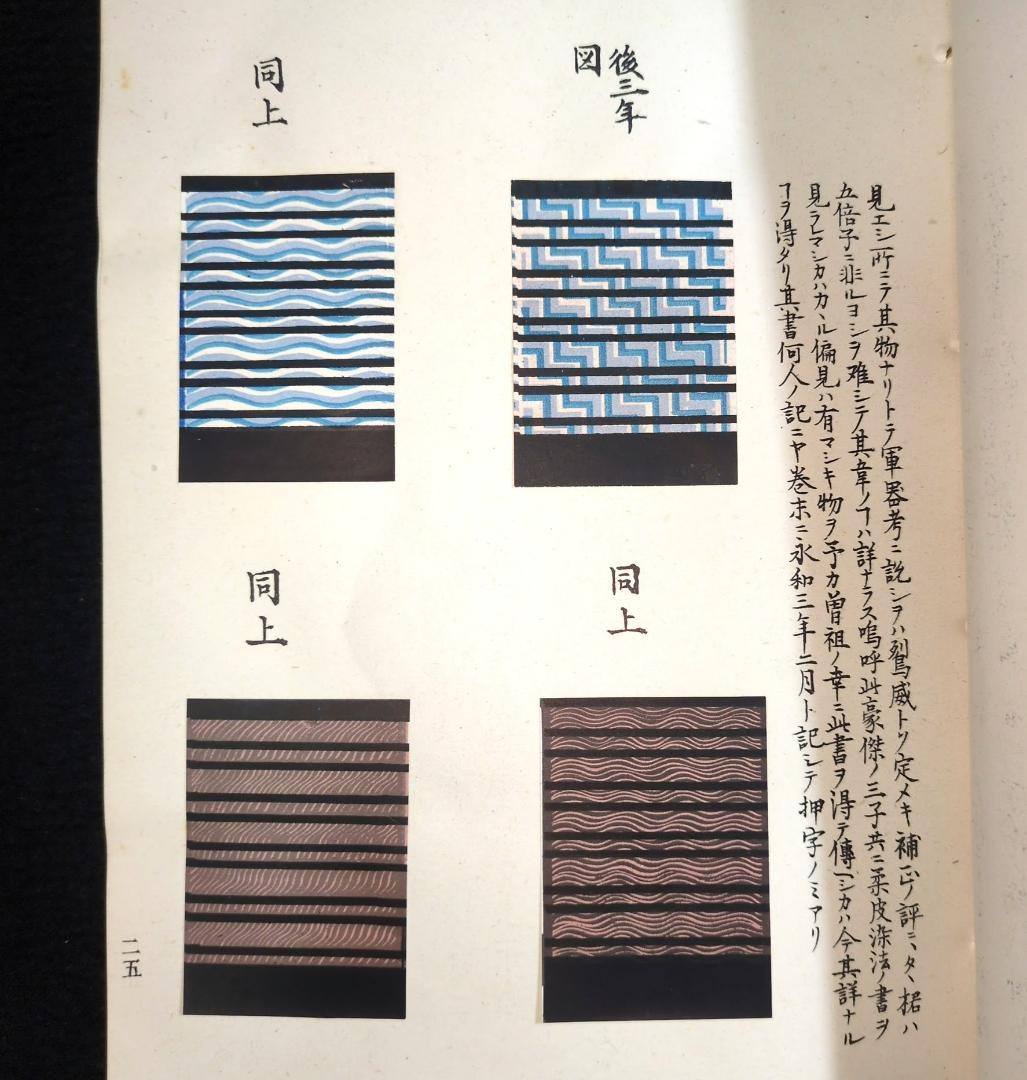 見エシ所ニテ其物ナリトテ軍器考ニ説シヲハ鴷威トソ定メキ補正ノ評ニ、タヽ楉ハ
五倍子ニ非ルヨシヲ难シテ其韋ノヿハ詳ナラス嗚呼此豪傑ノ三子共ニ柔皮染法ノ書ヲ
見ラレマシカハカヽル偏見ハ有マシキ物ヲ予カ曽祖ノ幸ニ此書ヲ得テ傳ヘシカハ今其詳ナル
ヿヲ得タリ其書何人ノ記ニヤ巻末ニ永和三年二月ト記シテ押字ノミアリ
後三年
図
同上
同上
同上
二五